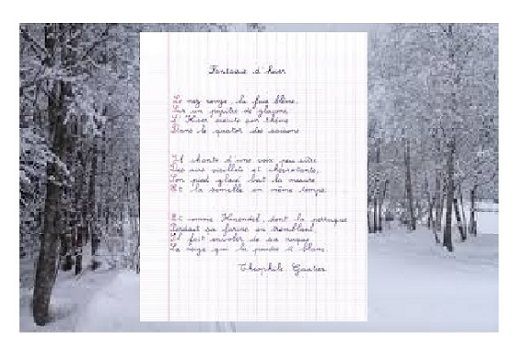 Fantaisie d'hiver
Le nez rouge, la face blême,
Sur un pupitre de glaçons,
L'Hiver exécute son thème
Dans le quatuor des saisons
Il chante d'une voix peu sûre
Des airs vieillots et chevrotants,
Son pied glacé bat la mesure
Et la semelle en même temps.
Et comme Haendel, dont la perruque
Perdait sa farine en tremblant
Il fait envoler de sa nuque
La neige qui la poudre à blanc.
Théophile Gautier